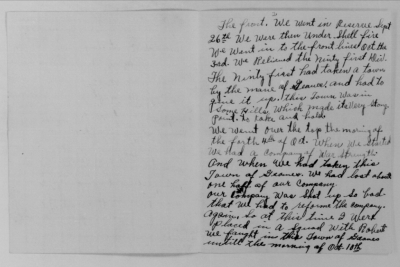 The front. We went in Reserve Sept
26th We were then Under Shell fire
We Went in to the front lines Oct the
3rd. We Relieved the Ninty first Divi.
The Ninty first had taken a town
by the name of and had to
give it up. this Town Was in
Some Hills Which made it Very Strong
Point. to take and hold.
We went over the top the morning of
the forth 4th of Oct. When We Started
We had a Company of War Strength
And When We had taken this
Town of We had lost about
one half of our Company
our Company Was Shot up So bad
that We had to reforme the Company.
again, So at this time I Were
placed in a Squad With Robert
We fought in this Town of
untill the morning of Oct 10th